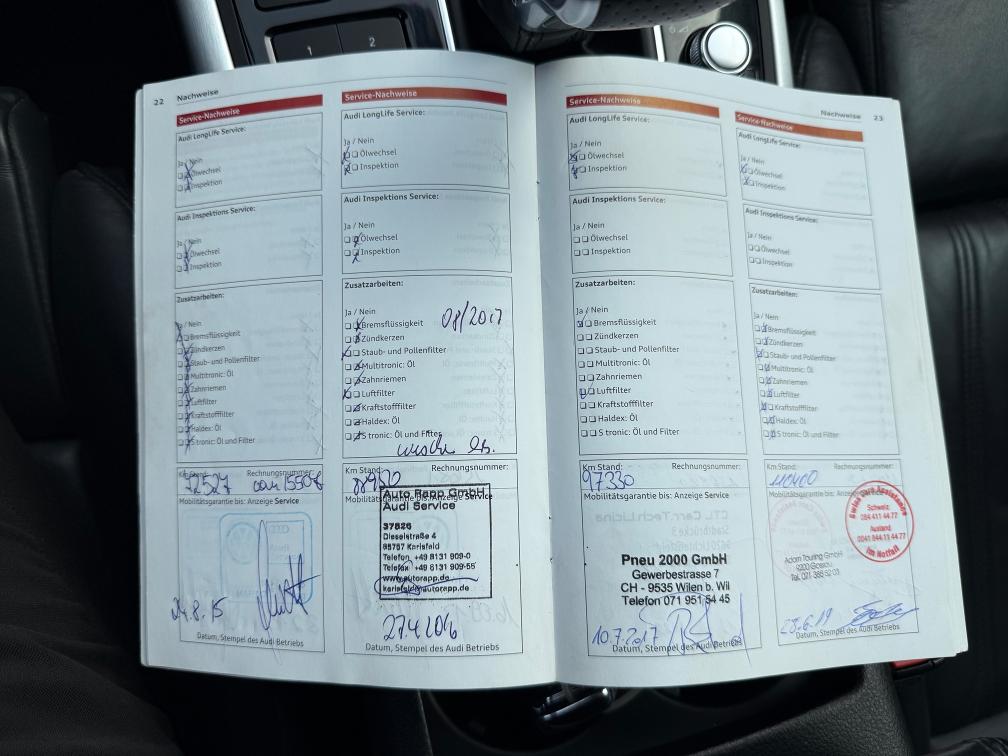 1
2
22 Nachweise
Service-Nachweise
Audi LongLife Service:
Ja / Nein
Ölwechsel
Inspektion
Audi Inspektions Service:
Ja / Nein
Ölwechsel
Inspektion
Zusatzarbeiten:
Ja / Nein
Bremsflüssigkeit
Zündkerzen
Staub- und Pollenfilter
Multitronic: Öl
Zahnriemen
Luftfilter
Kraftstofffilter
Haldex: Öl
S tronic: Öl und Filter
Km Stand: Rechnungsnummer:
72527
Mobilitätsgarantie bis: Anzeige Service
24.8.15
Datum, Stempel des Audi Betriebs
Service-Nachweise
Audi LongLife Service:
Ja / Nein
Ölwechsel
Inspektion
Audi Inspektions Service:
Ja / Nein
Ölwechsel
Inspektion
Zusatzarbeiten:
Ja / Nein
Bremsflüssigkeit 08/2017
Zündkerzen
Staub- und Pollenfilter
Multitronic: Öl
Zahnriemen
Luftfilter
Kraftstofffilter
Haldex: Öl
S tronic: Öl und Filter
Km Stand: Rechnungsnummer:
Mobilitätsgarantie bis: Anzeige Service
Auto Rapp GmbH
Audi Service
37826
Dieselstraße 4
85757 Karlsfeld
Telefon +49 8131 909-0
Telefax +49 8131 909-55
www.autorapp.de
karlsfeld@autorapp.de
Datum, Stempel des Audi Betriebs
Service-Nachweise
Audi LongLife Service:
Ja / Nein
Ölwechsel
Inspektion
Audi Inspektions Service:
Ja / Nein
Ölwechsel
Inspektion
Zusatzarbeiten:
Ja / Nein
Bremsflüssigkeit
Zündkerzen
Staub- und Pollenfilter
Multitronic: Öl
Zahnriemen
Luftfilter
Kraftstofffilter
Haldex: Öl
S tronic: Öl und Filter
Km Stand: Rechnungsnummer:
97330
Mobilitätsgarantie bis: Anzeige Service
Pneu 2000 GmbH
Gewerbestrasse 7
CH - 9535 Wilen b. Wil
Telefon 071 951 54 45
10.7.2017
Datum, Stempel des Audi Betriebs
Nachweise 23
Service-Nachweise
Audi LongLife Service:
Ja / Nein
Ölwechsel
Inspektion
Audi Inspektions Service:
Ja / Nein
Ölwechsel
Inspektion
Zusatzarbeiten:
Ja / Nein
Bremsflüssigkeit
Zündkerzen
Staub- und Pollenfilter
Multitronic: Öl
Zahnriemen
Luftfilter
Kraftstofffilter
Haldex: Öl
S tronic: Öl und Filter
Km Stand: Rechnungsnummer:
Mobilitätsgarantie bis: Anzeige Service
Schweiz
084 411 44 77
Ausland
0041 844 11 44 77
Im Notfall
Adam Touring GmbH
9200 Gossau
Datum, Stempel des Audi Betriebs